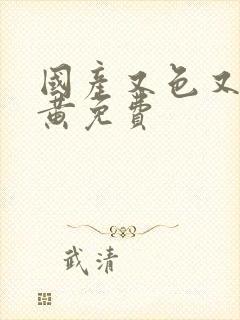 國產又色又
黄免費
武清